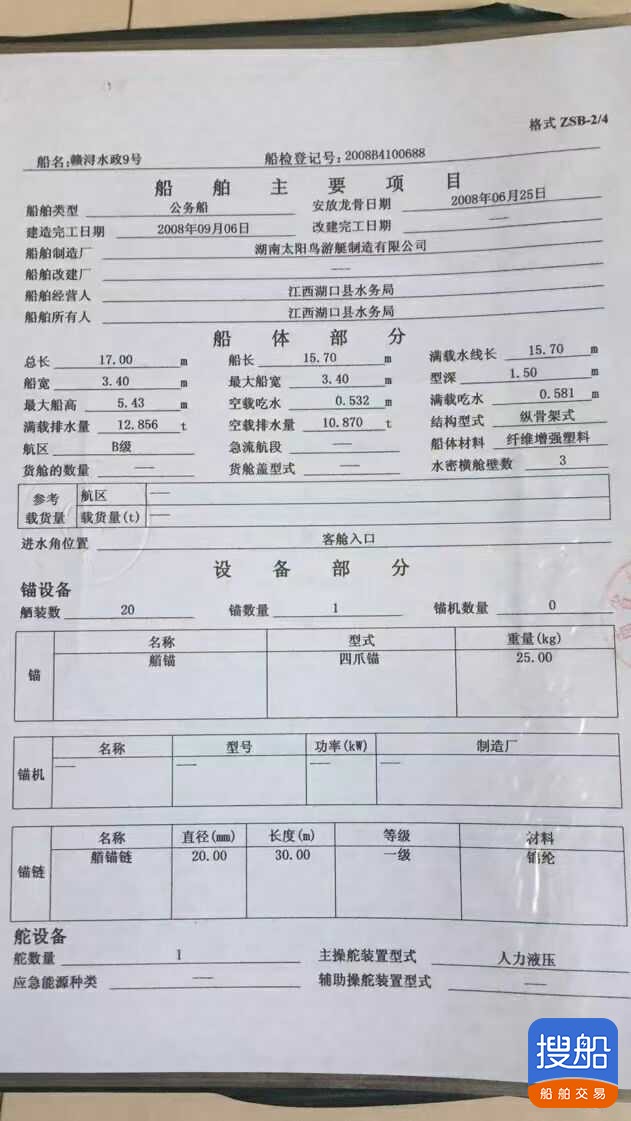 格式 ZSB-2/4
船名:赣浔水政9号 船检登记号:2008B4100688
船舶主要项目
船舶类型 公务船 安放龙骨日期 2008年06月25日
建造完工日期 2008年09月06日 改建完工日期 —
船舶制造厂 湖南太阳鸟游艇制造有限公司
船舶改建厂 —
船舶经营人 江西湖口县水务局
船舶所有人 江西湖口县水务局
船体部分
总长 17.00 m 船长 15.70 m 满载水线长 15.70 m
船宽 3.40 m 最大船宽 3.40 m 型深 1.50 m
最大船高 5.43 m 空载吃水 0.532 m 满载吃水 0.581 m
满载排水量 12.856 t 空载排水量 10.870 t 结构型式 纵骨架式
航区 B级 急流航段 — 船体材料 纤维增强塑料
货舱的数量 — 货舱盖型式 — 水密横舱壁数 3
参考 航区 —
载货量 载货量(t) —
进水角位置 客舱入口
设备部分
锚设备
舾装数 20 锚数量 1 锚机数量 0
名称 型式 重量(kg)
锚 艏锚 四爪锚 25.00
名称 型号 功率(kW) 制造厂
锚机 — — — —
名称 直径(mm) 长度(m) 等级 材料
锚链 艏锚链 20.00 30.00 一级 锦纶
舵设备
舵数量 1 主操舵装置型式 人力液压
应急能源种类 — 辅助操舵装置型式 —
搜船
船舶交易